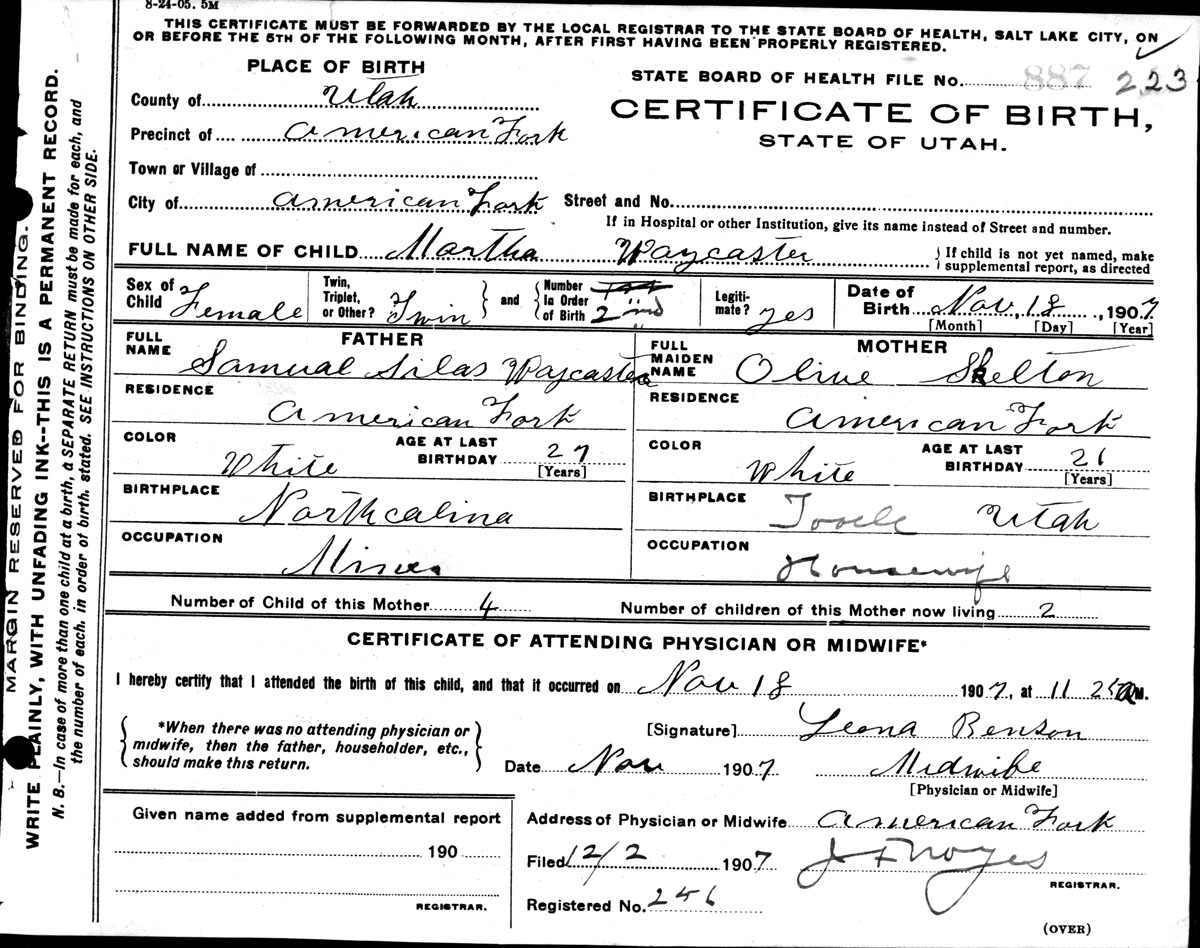 8-24-05. 5M
THIS CERTIFICATE MUST BE FORWARDED BY THE LOCAL REGISTRAR TO THE STATE BOARD OF HEALTH, SALT LAKE CITY, ON
OR BEFORE THE 5TH OF THE FOLLOWING MONTH, AFTER FIRST HAVING BEEN PROPERLY REGISTERED.
MARGIN RESERVED FOR BINDING.
WRITE PLAINLY, WITH UNFADING INK--THIS IS A PERMANENT RECORD.
N. B.—In case of more than one child at a birth, a SEPARATE RETURN must be made for each, and
the number of each, in order of birth, stated. SEE INSTRUCTIONS ON OTHER SIDE.
PLACE OF BIRTH
STATE BOARD OF HEALTH FILE No. 887 223
County of Utah
CERTIFICATE OF BIRTH,
STATE OF UTAH.
Precinct of American Fork
Town or Village of
City of American Fork Street and No.
If in Hospital or other Institution, give its name instead of Street and number.
FULL NAME OF CHILD Martha Waycaster { If child is not yet named, make
supplemental report, as directed
Sex of Child Female Twin, Triplet, or Other? Twin and Number In Order of Birth 2nd Legitimate? yes Date of Birth Nov, 18, 1907
[Month] [Day] [Year]
FATHER MOTHER
FULL NAME Samual Silas Waycaster FULL MAIDEN NAME Olive Skelton
RESIDENCE American Fork RESIDENCE American Fork
COLOR White AGE AT LAST BIRTHDAY 27 [Years] COLOR White AGE AT LAST BIRTHDAY 21 [Years]
BIRTHPLACE Northcalina BIRTHPLACE Tooele Utah
OCCUPATION Miner OCCUPATION Housewife
Number of Child of this Mother 4 Number of children of this Mother now living 2
CERTIFICATE OF ATTENDING PHYSICIAN OR MIDWIFE*
I hereby certify that I attended the birth of this child, and that it occurred on Nov 18 1907, at 11 25 A M.
{ *When there was no attending physician or
midwife, then the father, householder, etc.,
should make this return. }
[Signature] Leona Benson
Date Nov 1907 Midwife
[Physician or Midwife]
Given name added from supplemental report
190
REGISTRAR.
Address of Physician or Midwife American Fork
Filed 12/2 1907 J F Noyes
REGISTRAR.
Registered No. 246
(OVER)